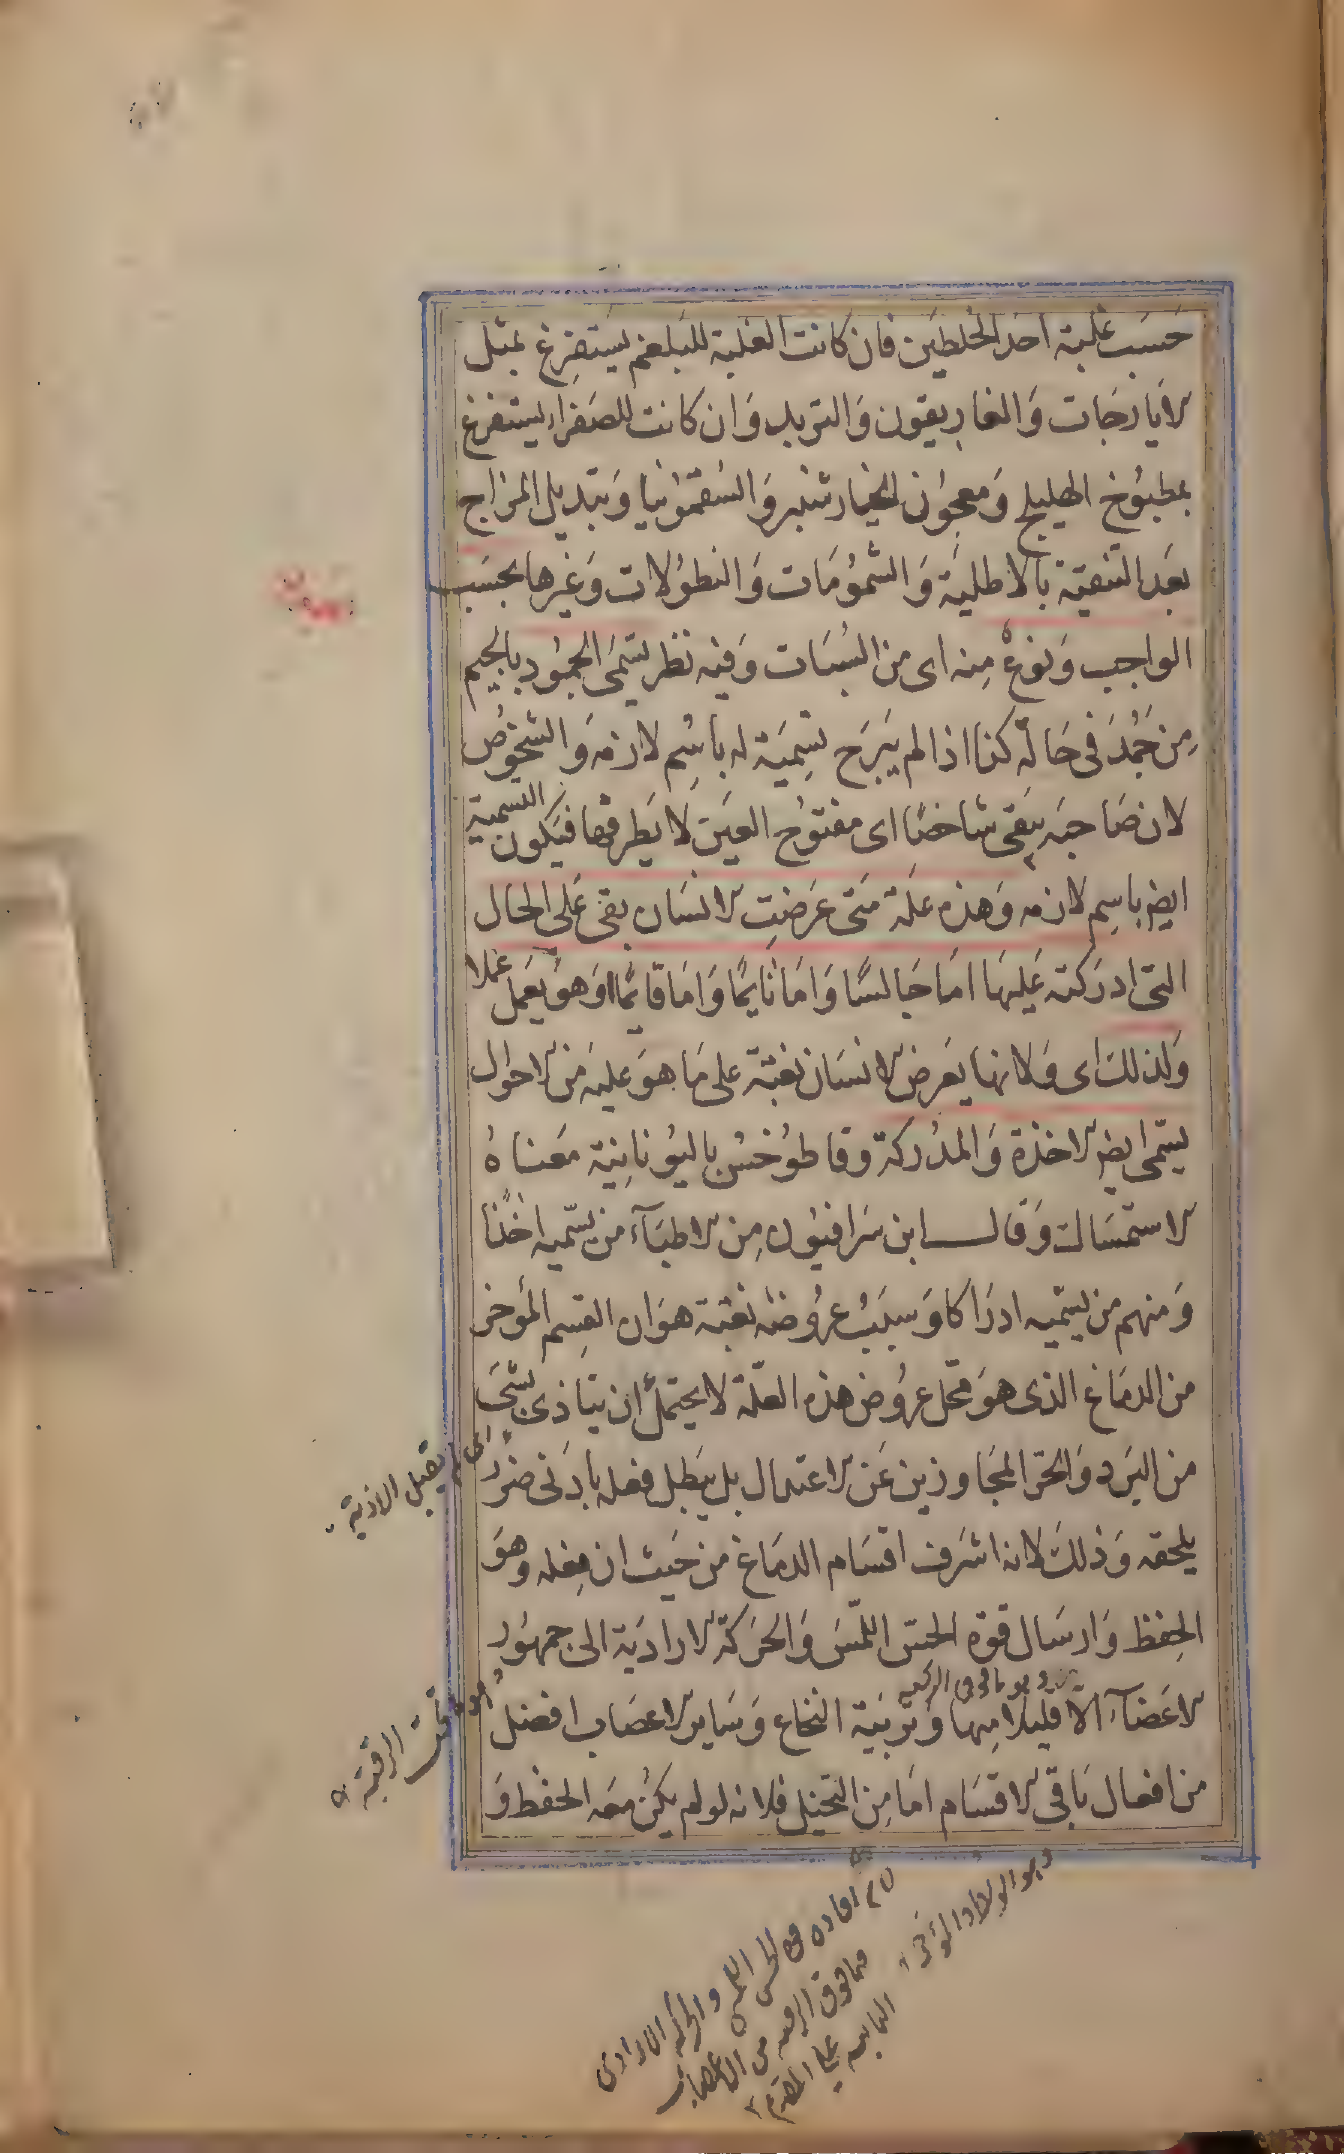 حَسَب غلبة احَد الخلطَين فان كانت الغلبة للبَلغم يستفرغ بمثل
الايارجَات وَالغاريقون وَالتربد وَان كانت للصَفراء يستفرغ
بمطبوُخ الهليلج وَمعجوُن الخيارشنبر وَالسَقمونيا وَتبديل المزاج
بعَد التنقية بالاطليَة وَالشموُمَات وَالنطوُلات وَغيرها بحسَب
الواجب وَنوعٌ مِنه اى من السُبَات وَفيه نظر يسَمىَ الجموُد بالجيم
مِن جَمُدَ فى حَالة كذا اذا لم يَبرَح تسِميَة له باسِم لازمه وَالشخوُص
لان صَاحبَه يبَقى شاخصًا اى مفتوُح العيَن لا يَطرفها فيَكون التسمية
ايضا باسِم لازمه وَهذه علَة متى عَرضت الانسَان بقى عَلى الحَال
التى ادرَكته عَليهَا امَا جَالسًا وَامَا نايمًا وَامَا قايمًا اوَ هوَ يعَمل عملا
وَلذلكَ اى وَلانها يعَرض الانسَان بَغتة على مَا هوَ عليه من الاحوَال
يسَمى ايضا الاخذة وَالمدُركة وقاطوُخسُ باليوُنانِية معَناهُ
الاستمسَاك وَقال ابن سَرافيوُن مِن الاطبآَء من يسمّيه اخذًا
وَمنهم من يسمّيه ادرَاكا وَسبَبُ عرُوضه بَغتة هوَ ان القسِم المؤخر
من الدمَاغ الذى هوَ محَل عرُوض هذه العلّة لا يحتملُ ان يتَاذى بشئَ
من البَرد وَالحَرّ المجَاوزين عَن الاعتدال بل يبَطل فعله بادَنى ضرَر
يلحقه وَذلكَ لانه اشرَف اقسَام الدمَاغ من حَيث ان فِعله وهوَ
الحِفظ وَارسَال قوة الحسّ اللّمسَ وَالحَركة الارادَية الى جمهوُر
الاعَضآَء الّا قليلًا مِنها وَتربَية النخاع وَسَاير الاعصَاب افضل
من افعال بَاقى الاقسَام امَا مِن التخيل فلانه لو لم يكُن معَه الحفظ وَ
اى لم يقبل الاذية
الرقبة
افاده قوة الحس اللمس والحركة الارادى
فما فوق الرقبة من الاعصاب